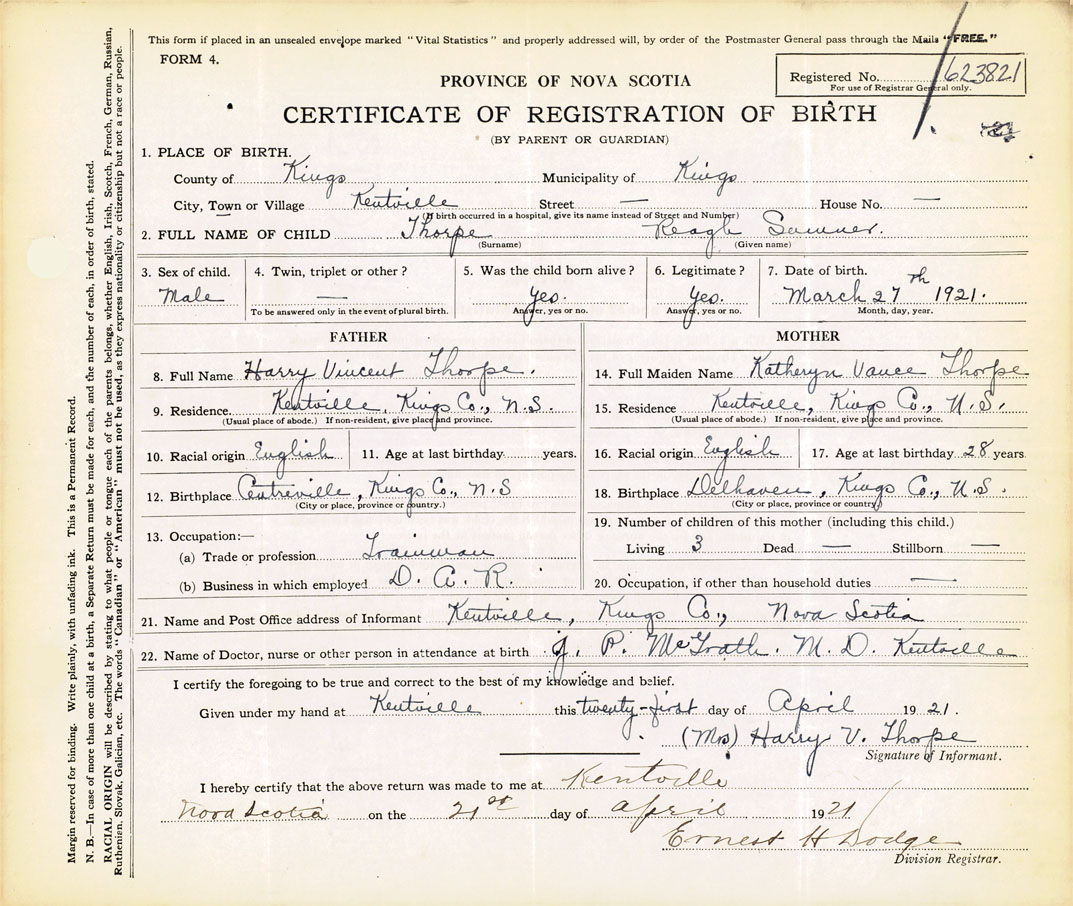 This form if placed in an unsealed envelope marked "Vital Statistics" and properly addressed will, by order of the Postmaster General pass through the Mails "FREE."
FORM 4.
PROVINCE OF NOVA SCOTIA
Registered No. 623821
For use of Registrar General only.
CERTIFICATE OF REGISTRATION OF BIRTH
(BY PARENT OR GUARDIAN)
1. PLACE OF BIRTH.
County of Kings Municipality of Kings
City, Town or Village Kentville Street — House No. —
(If birth occurred in a hospital, give its name instead of Street and Number)
2. FULL NAME OF CHILD Thorpe Reagh Sumner.
(Surname) (Given name)
3. Sex of child. 4. Twin, triplet or other? 5. Was the child born alive? 6. Legitimate? 7. Date of birth.
Male — Yes. Yes. March 27th 1921.
To be answered only in the event of plural birth. Answer, yes or no. Answer, yes or no. Month, day, year.
FATHER
8. Full Name Harry Vincent Thorpe.
9. Residence. Kentville, Kings Co., N.S.
(Usual place of abode.) If non-resident, give place and province.
10. Racial origin English 11. Age at last birthday years.
12. Birthplace Centreville, Kings Co., N.S
(City or place, province or country.)
13. Occupation:—
(a) Trade or profession Trainman
(b) Business in which employed D. A. R.
MOTHER
14. Full Maiden Name Katheryn Vance Thorpe
15. Residence Kentville, Kings Co., N.S.
(Usual place of abode.) If non-resident, give place and province.
16. Racial origin English 17. Age at last birthday 28 years
18. Birthplace Delhaven, Kings Co., N.S.
(City or place, province or country)
19. Number of children of this mother (including this child.)
Living 3 Dead — Stillborn —
20. Occupation, if other than household duties —
21. Name and Post Office address of Informant Kentville, Kings Co., Nova Scotia
22. Name of Doctor, nurse or other person in attendance at birth J. P. McGrath. M. D. Kentville
I certify the foregoing to be true and correct to the best of my knowledge and belief.
Given under my hand at Kentville this twenty-first day of April 1921.
(Mrs) Harry V. Thorpe
Signature of Informant.
I hereby certify that the above return was made to me at Kentville
Nova Scotia on the 21st day of April 1921
Ernest H Dodge
Division Registrar.
Margin reserved for binding. Write plainly, with unfading ink. This is a Permanent Record.
N. B.—In case of more than one child at a birth, a Separate Return must be made for each, and the number of each, in order of birth, stated.
RACIAL ORIGIN will be described by stating to what people or tongue each of the parents belongs, whether English, Irish, Scotch, French, German, Russian,
Ruthenian, Slovak, Galician, etc. The words "Canadian" or "American" must not be used, as they express nationality or citizenship but not a race or people.